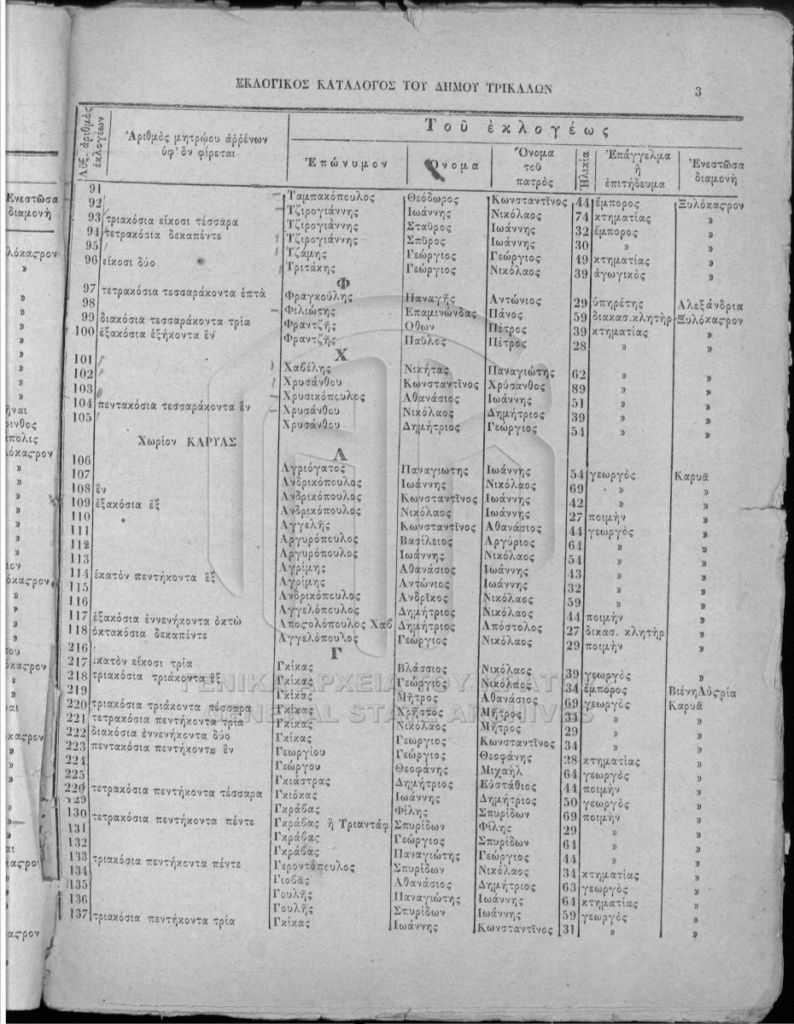 ΕΚΛΟΓΙΚΟΣ ΚΑΤΑΛΟΓΟΣ ΤΟΥ ΔΗΜΟΥ ΤΡΙΚΑΛΩΝ 3
Αὔξ. ἀριθμὸς ἐκλογέων
Ἀριθμὸς μητρώου ἀρρένων ὑφ' ὃν φέρεται
Τοῦ ἐκλογέως
Ἐπώνυμον Ὄνομα Ὄνομα τοῦ πατρὸς Ἡλικία Ἐπάγγελμα ἢ ἐπιτήδευμα Ἐνεστῶσα διαμονὴ
91 Ταμπακόπουλος Θεόδωρος Κωνσταντῖνος 44 ἔμπορος Ξυλόκαστρον
92 Τζιρογιάννης Ἰωάννης Νικόλαος 74 κτηματίας »
93 τριακόσια εἴκοσι τέσσαρα Τζιρογιάννης Σταῦρος Ἰωάννης 32 ἔμπορος »
94 τετρακόσια δεκαπέντε Τζιρογιάννης Σπῦρος Ἰωάννης 30 » »
95 Τζάμης Γεώργιος Γεώργιος 49 κτηματίας »
96 εἴκοσι δύο Τριτάκης Γεώργιος Νικόλαος 39 ἀγωγικὸς »
Φ
97 τετρακόσια τεσσαράκοντα ἑπτά Φραγκούλης Παναγῆς Ἀντώνιος 29 ὑπηρέτης Ἀλεξάνδρια
98 Φιλιώτης Ἐπαμινώνδας Πάνος 59 διακασ.κλητὴρ Ξυλόκαστρον
99 διακόσια τεσσαράκοντα τρία Φραντζῆς Ὄθων Πέτρος 39 κτηματίας »
100 ἑξακόσια ἑξήκοντα ἕν Φραντζῆς Παῦλος Πέτρος 28 » »
Χ
101 Χαβέλης Νικήτας Παναγιώτης 62 » »
102 Χρυσάνθου Κωνσταντῖνος Χρύσανθος 89 » »
103 Χρυσικόπουλος Ἀθανάσιος Ἰωάννης 51 » »
104 πεντακόσια τεσσαράκοντα ἕν Χρυσάνθου Νικόλαος Δημήτριος 39 » »
105 Χρυσάνθου Δημήτριος Γεώργιος 54 » »
Χωρίον ΚΑΡΥΑΣ
Α
106 Ἀγριόγατος Παναγιωτης Ἰωάννης 54 γεωργὸς Καρυᾶ
107 Ἀνδρικόπουλος Ἰωάννης Νικόλαος 69 » »
108 ἕν Ἀνδρικόπουλος Κωνσταντῖνος Ἰωάννης 42 » »
109 ἑξακόσια ἕξ Ἀνδρικόπουλος Νικόλαος Ἰωάννης 27 ποιμὴν »
110 Ἀγγελῆς Κωνσταντῖνος Ἀθανάσιος 44 γεωργὸς »
111 Ἀργυρόπουλος Βασίλειος Ἀργύριος 64 » »
112 Ἀργυρόπουλος Ἰωάννης Νικόλαος 54 » »
113 Ἀγρίμης Ἀθανάσιος Ἰωάννης 43 » »
114 ἑκατὸν πεντήκοντα ἕξ Ἀγρίμης Ἀντώνιος Ἰωάννης 32 » »
115 Ἀνδρικόπουλος Ἀνδρῖκος Νικόλαος 59 » »
116 Ἀγγελόπουλος Δημήτριος Νικόλαος 44 ποιμὴν »
117 ἑξακόσια ἐννενήκοντα ὀκτώ Ἀποστολόπουλος Χαβ Δημήτριος Ἀπόστολος 27 δικασ. κλητὴρ »
118 ὀκτακόσια δεκαπέντε Ἀγγελόπουλος Γεώργιος Νικόλαος 29 ποιμὴν »
216
Γ
217 κατὸν εἴκοσι τρία Γκίκας Βλάσσιος Νικόλαος 39 γεωργὸς »
218 τριακόσια τριάκοντα ἕξ Γκίκας Γεώργιος Νικόλαος 34 ἔμπορος
219 Γκίκας Μῆτρος Ἀθανάσιος 69 γεωργὸς Καρυᾶ
220 τριακόσια τριάκοντα τέσσαρα Γκίκας Χρῆστος Μῆτρος 34 » »
221 τετρακόσια πεντήκοντα τρία Γκίκας Νικόλαος Μῆτρος 29 » »
222 διακόσια ἐννενήκοντα δύο Γκίκας Γεωργιος Κωνσταντῖνος 34 » »
223 πεντακόσια πεντήκοντα ἕν Γεωργίου Γεώργιος Θεοφάνης 28 κτηματίας »
224 Γεώργου Θεοφάνης Μιχαὴλ 64 γεωργὸς »
225 Γκιάστρας Δημήτριος Εὐστάθιος 44 ποιμὴν »
220 τετρακόσια πεντήκοντα τέσσαρα Γκιόκας Ἰωάννης Δημήτριος 50 γεωργὸς »
129 Γκράβας Φίλης Σπυρίδων 69 ποιμὴν »
130 τετρακόσια πεντήκοντα πέντε Γκράβας ἢ Τριαντάφ Σπυρίδων Φίλης 29 » »
131 Γκράβας Γεώργιος Σπυρίδων 64 » »
132 Γκράβας Παναγιώτης Γεώργιος 44 » »
133 τριακόσια πεντήκοντα πέντε Γεροντόπουλος Σπυρίδων Νικόλαος 34 κτηματίας »
134 Γιοβᾶς Ἀθανάσιος Δημήτριος 63 γεωργὸς »
135 Γουλῆς Παναγιώτης Ἰωάννης 64 κτηματίας »
136 Γουλῆς Σπυρίδων Ἰωάννης 59 γεωργὸς »
137 τριακόσια πεντήκοντα τρία Γκίκας Ἰωάννης Κωνσταντῖνος 31 » »
ΓΕΝΙΚΑ ΑΡΧΕΙΑ ΤΟΥ ΚΡΑΤΟΥΣ
GENERAL STATE ARCHIVES